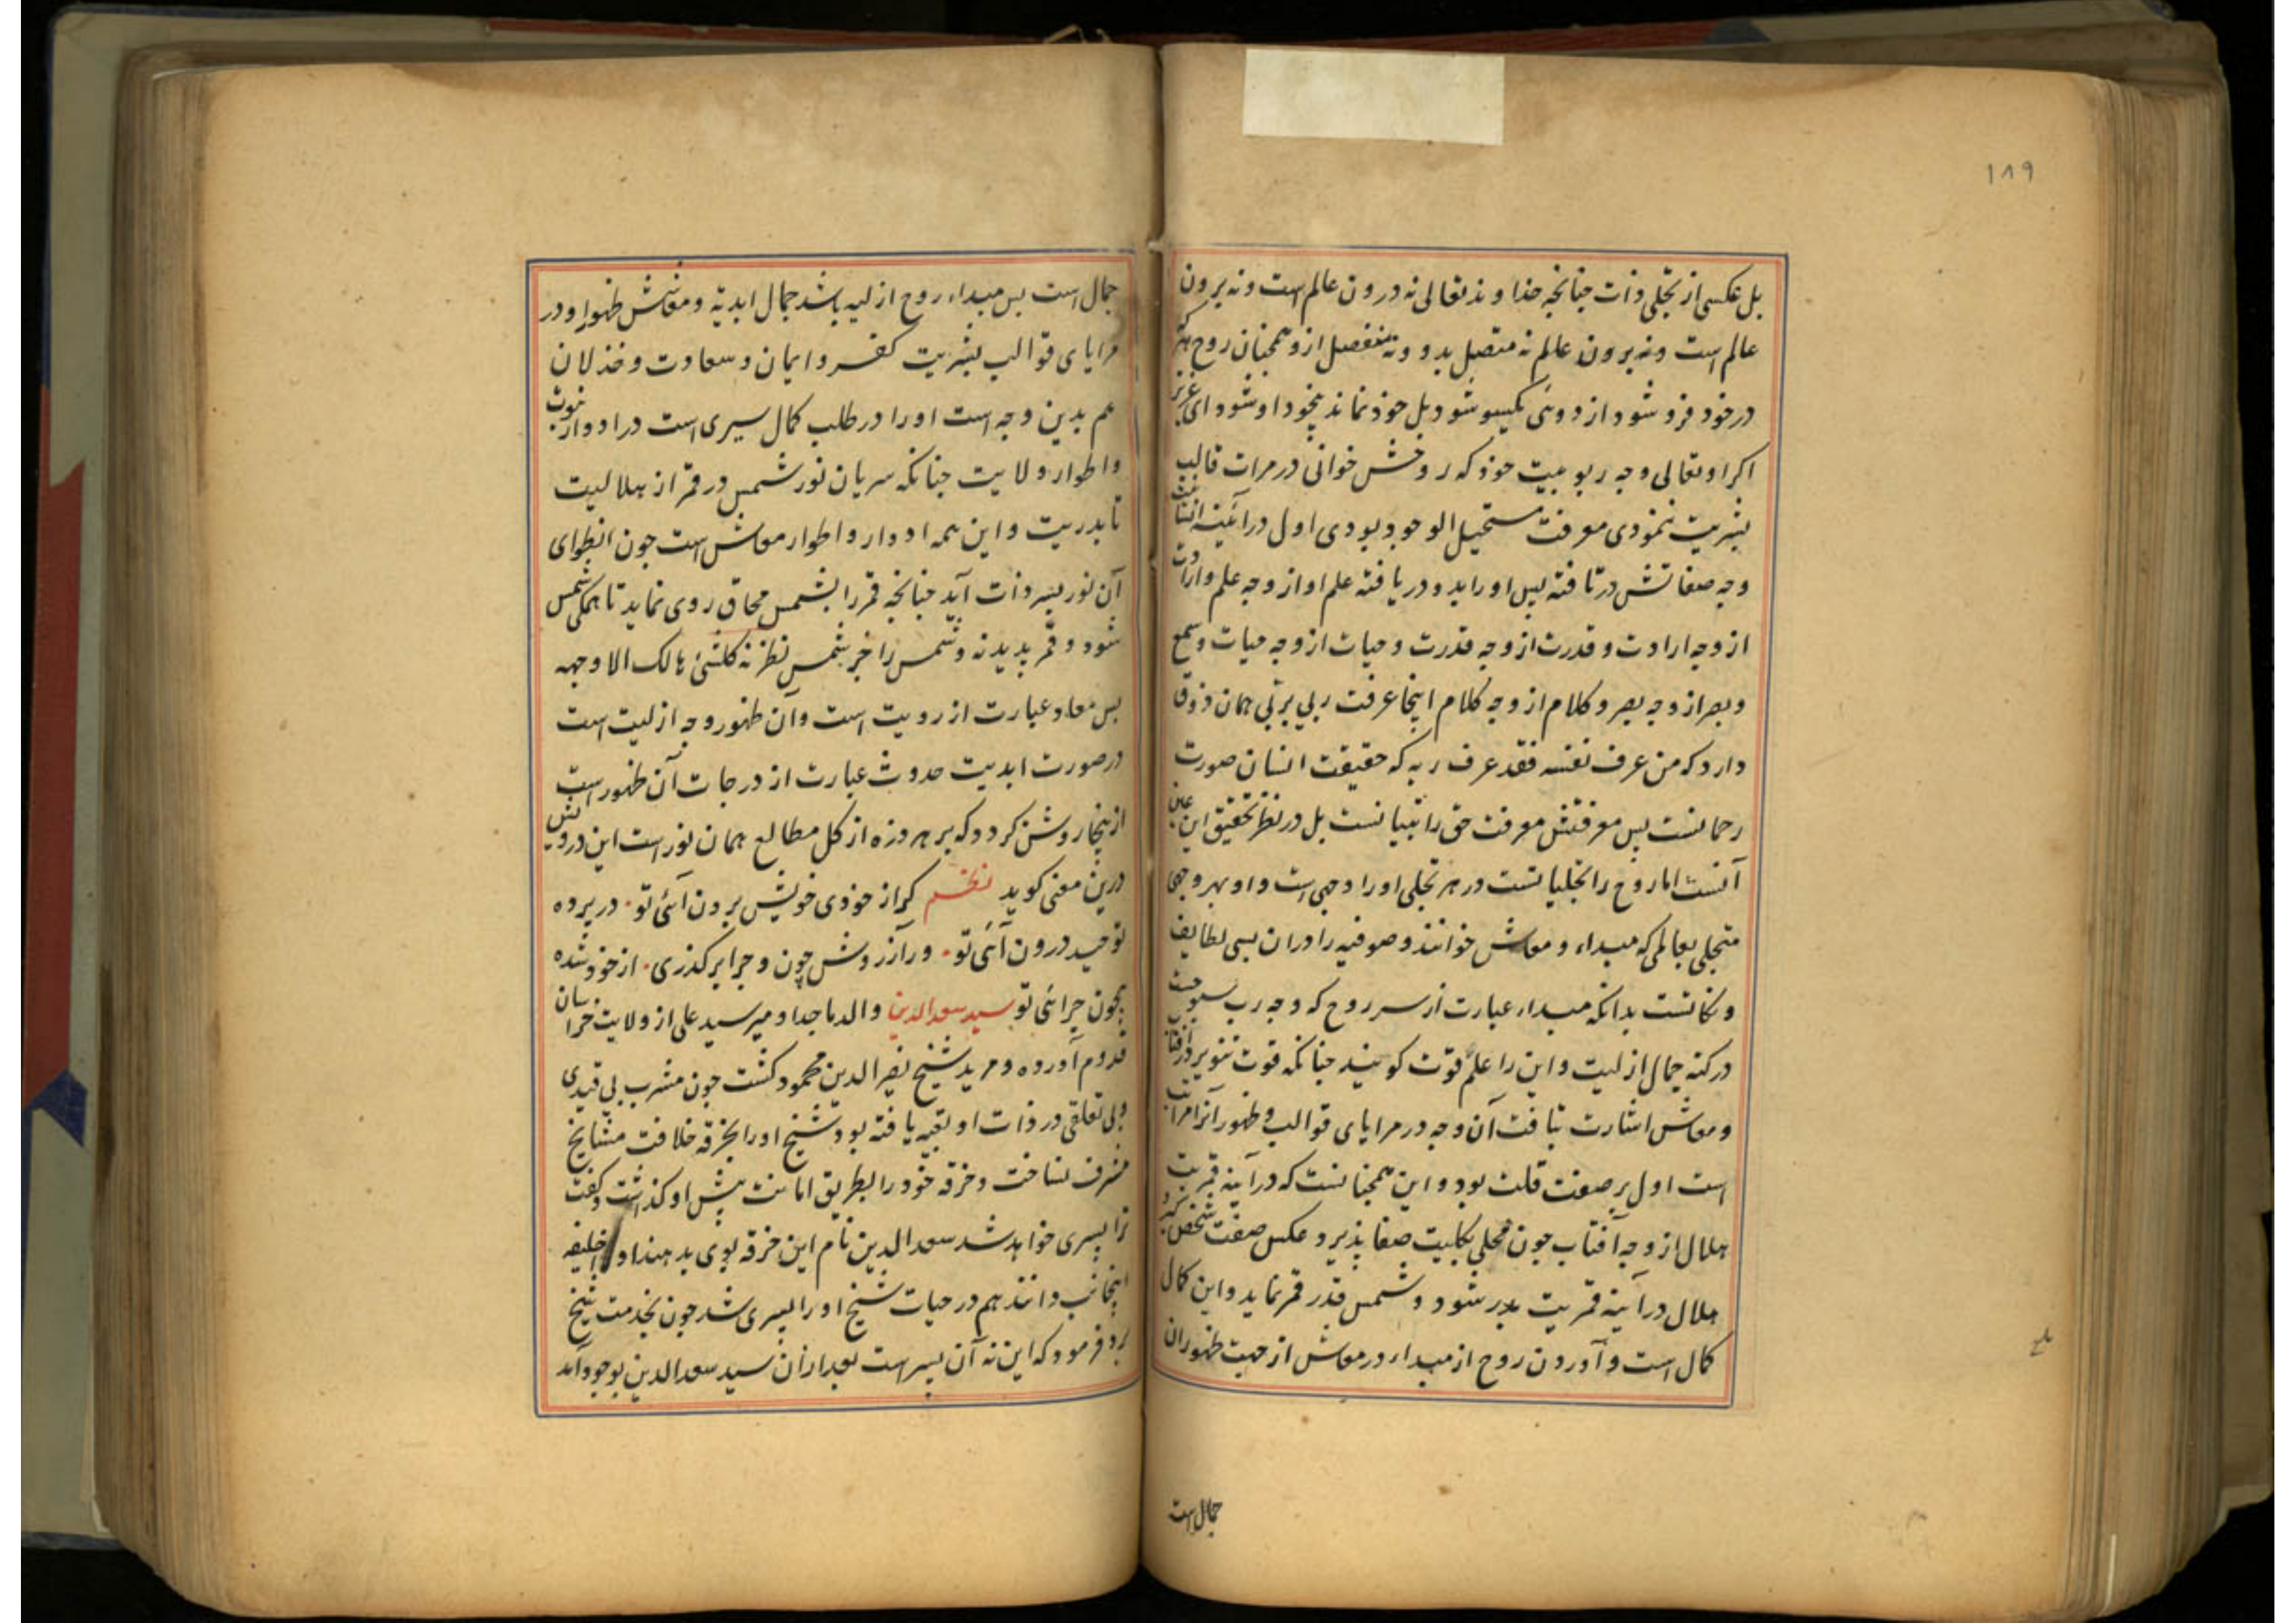 ۱۸۹
بل عکسی از تجلی ذات چنانچه خداوند تعالی نه درون عالم است و نه برون
عالم است و نه برون عالم نه متصل بدو و نه منفصل ازو همچنان روح هر که
در خود فرو شود از دوئی یکسو شود بل خود نماند بخود او شود ای عزیز
اکر او تعالی وجه ربوبیت خود که روحش خوانی در مرات قالب
بشریت ننمودی معرفت مستحیل الوجود بودی اول در آئینه
وجه صفاتش در تافته پس او را بدو دریافته علم او از وجه علم و ارادت
از وجه ارادت و قدرت از وجه قدرت و حیات از وجه حیات و سمع
و بصر از وجه بصر و کلام از وجه کلام اینجا عرفت ربی بربی همان ذوق
دارد که من عرف نفسه فقد عرف ربه که حقیقت انسان صورت
رحمانست پس معرفتش معرفت حق را تبیانست بل در نظر تحقیق این عین
آنست اما روح را تجلیاتست در هر تجلی او را وجهی است و او بهر وجهی
متجلی بعالمی که مبداء و معاش خوانند و صوفیه را دران بسی لطایف
و نکاتست بدانکه مبداء عبارت از سر روح که وجه رب
در کنه جمال ازلیت و این را علم قوت کویند چنانکه قوت تنویر در آفتاب
و معاش اشارت بتافت آن وجه در مرایای قوالب و ظهور آنرا مراتب
است اول بر صفت قلت بود و این همچنانست که در آینه قمریت
هلال از وجه آفتاب چون محلی بکلیت صفا پذیرد عکس صفت شخص کیرد
هلال در آینه قمریت بدر شود و شمس قدر قمر نماید و این کمال
کمال است و آوردن روح از مبداء در معاش از جهت ظهور ان
جمال است
جمال است پس مبداء روح ازلیه باشد جمال ابدیه و معاشش ظهور او در
مرایای قوالب بشریت کفر و ایمان و سعادت و خذلان
هم بدین وجه است او را در طلب کمال سیری است در ادوار نبوت
و اطوار ولایت چنانکه سریان نور شمس در قمر از هلالیت
تا بدریت و این همه ادوار و اطوار معاش است چون انطوای
آن نور بسر ذات آید چنانچه قمر را بشمس محاق روی نماید تا همکی شمس
شود و قمر پدید نه و شمس را جز بشمس نظر نه کلشئ هالک الا وجهه
پس معاد عبارت از رویت است و آن ظهور وجه ازلیت است
در صورت ابدیت حدوث عبارت از درجات آن ظهور است
از ینجا روشن کردد که بر هر ذره از کل مطالع همان نور است این درویش
درین معنی کوید نظم کر از خودی خویش برون آئی تو در پرده
توحید درون آئی تو ور از روش چون و چرا بر کذری از خود شده
بیچون چرائی تو سید سعدالدین والد ماجد او میر سید علی از ولایت خراسان
قدوم آورده و مرید شیخ نصیر الدین محمود کشت چون مشرب بی قیدی
و بی تعلقی در ذات او تعبیه یافته بود شیخ او را بخرقه خلافت مشایخ
مشرف نساخت و خرقه خود را بطریق امانت پیش او کذاشت و کفت
ترا پسری خواهد شد سعدالدین نام این خرقه بوی بدهند او را خلیفه
اینجانب دانند هم در حیات شیخ او را پسری شد چون بخدمت شیخ
برد فرمود که این نه آن پسر است بعد ازان سید سعدالدین بوجود آمد